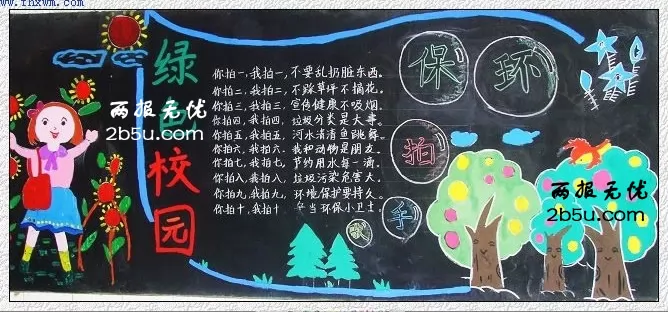 绿色校园
保环
拍
手
歌
你拍一,我拍一,不要乱扔脏东西。
你拍二,我拍二,不踩草坪不摘花。
你拍三,我拍三,宣传健康不吸烟。
你拍四,我拍四,垃圾分类是大事。
你拍五,我拍五,河水清清鱼跳舞。
你拍六,我拍六,我和动物是朋友。
你拍七,我拍七,节约用水每一滴。
你拍八,我拍八,垃圾污染危害大。
你拍九,我拍九,环境保护要持久。
你拍十,我拍十 争当环保小卫士。
两报无优
2b5u.com
两报无优
2b5u.com